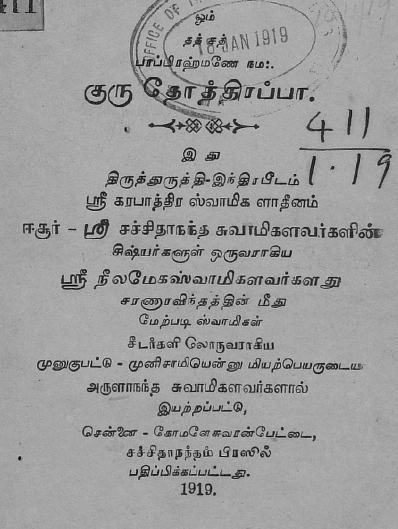 411
ஓம்
தத்சத்
OFFICE OF
18 JAN 1919
பரப்பிரஹ்மணே நம:.
குரு தோத்திரப்பா.
411
1.19
இது
திருத்துருத்தி-இந்திரபீடம்
ஸ்ரீ கரபாத்திர ஸ்வாமிக ளாதீனம்
ஈசூர் - ஸ்ரீ சச்சிதாநந்த சுவாமிகளவர்களின்
சிஷ்யர்களுள் ஒருவராகிய
ஸ்ரீ நீலமேகஸ்வாமிகளவர்களது
சரணாரவிந்தத்தின் மீது
மேற்படி ஸ்வாமிகள்
சீடர்களி லொருவராகிய
முனுகுபட்டு - முனிசாமியென்னு மியற்பெயருடைய
அருளாநந்த சுவாமிகளவர்களால்
இயற்றப்பட்டு,
சென்னை - கோமளேசுவரன்பேட்டை,
சச்சிதாநந்தம் பிரஸில்
பதிப்பிக்கப்பட்டது.
1919.